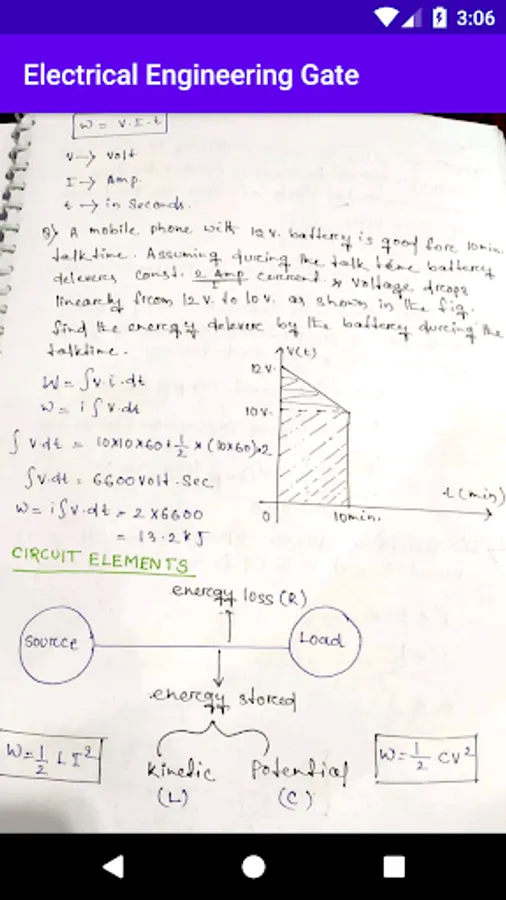 3:06
Electrical Engineering Gate
W = V.I.t
V → Volt
I → Amp.
t → in Seconds.
Q) A mobile phone with 12 v. battercy is good fore 10min.
talktime. Assuming ducing the talk time battercy
deleveres const. 2 Amp curcent & voltage drcops
linearcly frcom 12 V. to 10 v. as shown in the fig.
find the enercgy delevere by the battercy ducing the
talktime.
W = ∫v.i.dt
W = i∫v.dt
∫v.dt = 10x10x60+1/2 x (10x60)x2
∫v.dt = 6600 Volt.Sec
W = i∫v.dt = 2 x 6600
= 13.2kJ
V(t)
12v.
10v.
0
10min.
t(min)
CIRCUIT ELEMENTS
enercgy loss (R)
Source
Load
enercgy storced
Kinetic
(L)
Potential
(C)
W = 1/2 LI²
W = 1/2 CV²